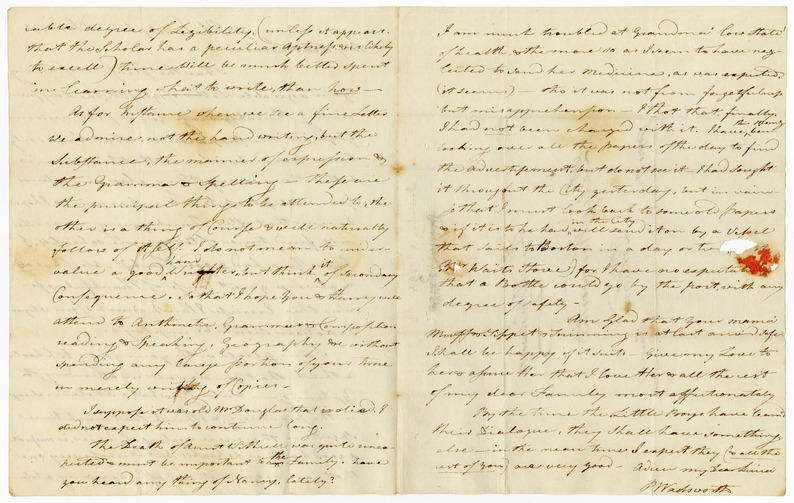 rable degree of Legibility, (unless it appears
that the Scholar has a peculiar Aptness & is likely
to excell) time will be much better spent
in learning what to write, than how —
As for Instance when we see a fine Letter
we admire, not the hand writing, but the
Substance, the manner of expression &
the Grammar & Spelling — these are
the principal things to be attended to, the
other is a thing of Course & will naturally
follow of itself. I do not mean to under
value a good hand Writer, but think it of secondary
Consequence. So that I hope You & Harry will
attend to Arithmetic, Grammar & Composition
reading & Speaking, Geography &c without
spending any large portion of your time
in merely writing of Copies —
I suppose it was old Mr Douglas that is died. I
did not expect him to continue long.
The Death of Aunt Withell was quite unex
pected & must be important to the Family. have
you heard any thing of Nancy, lately?
I am much troubled at Grandma' Cors State
of health, & the more so as I seem to have neg
lected to send her Medicine, as was expected,
(it seems) — tho it was not from forgetfulness
but misapprehension — I thot that, finally,
I had not been charged with it. I have, this Morng been
looking over all the papers of the day to find
the advertisement, but do not see it — I had sought
it throughout the City yesterday, but in vain —
so that I must look back to some old papers
& if it is to be had, in the City will send it on by a Vessel
that sails to Boston in a day or two
Waits Store) for I have no
that a Bottle could go by the post, with any
degree of safety —
Am Glad that your mama'
Muff or Tippet & trimming is at last arrived safe
I shall be happy if it suits — give my Love to
her & assure Her that I love Her & all the rest
of my dear Family most affectionately
By the time the Little Boys have learnd
their Dialogue, they shall have something
else — in the mean time I expect they (& all the
rest of you) are very good — Adieu my dear
P Wadsworth